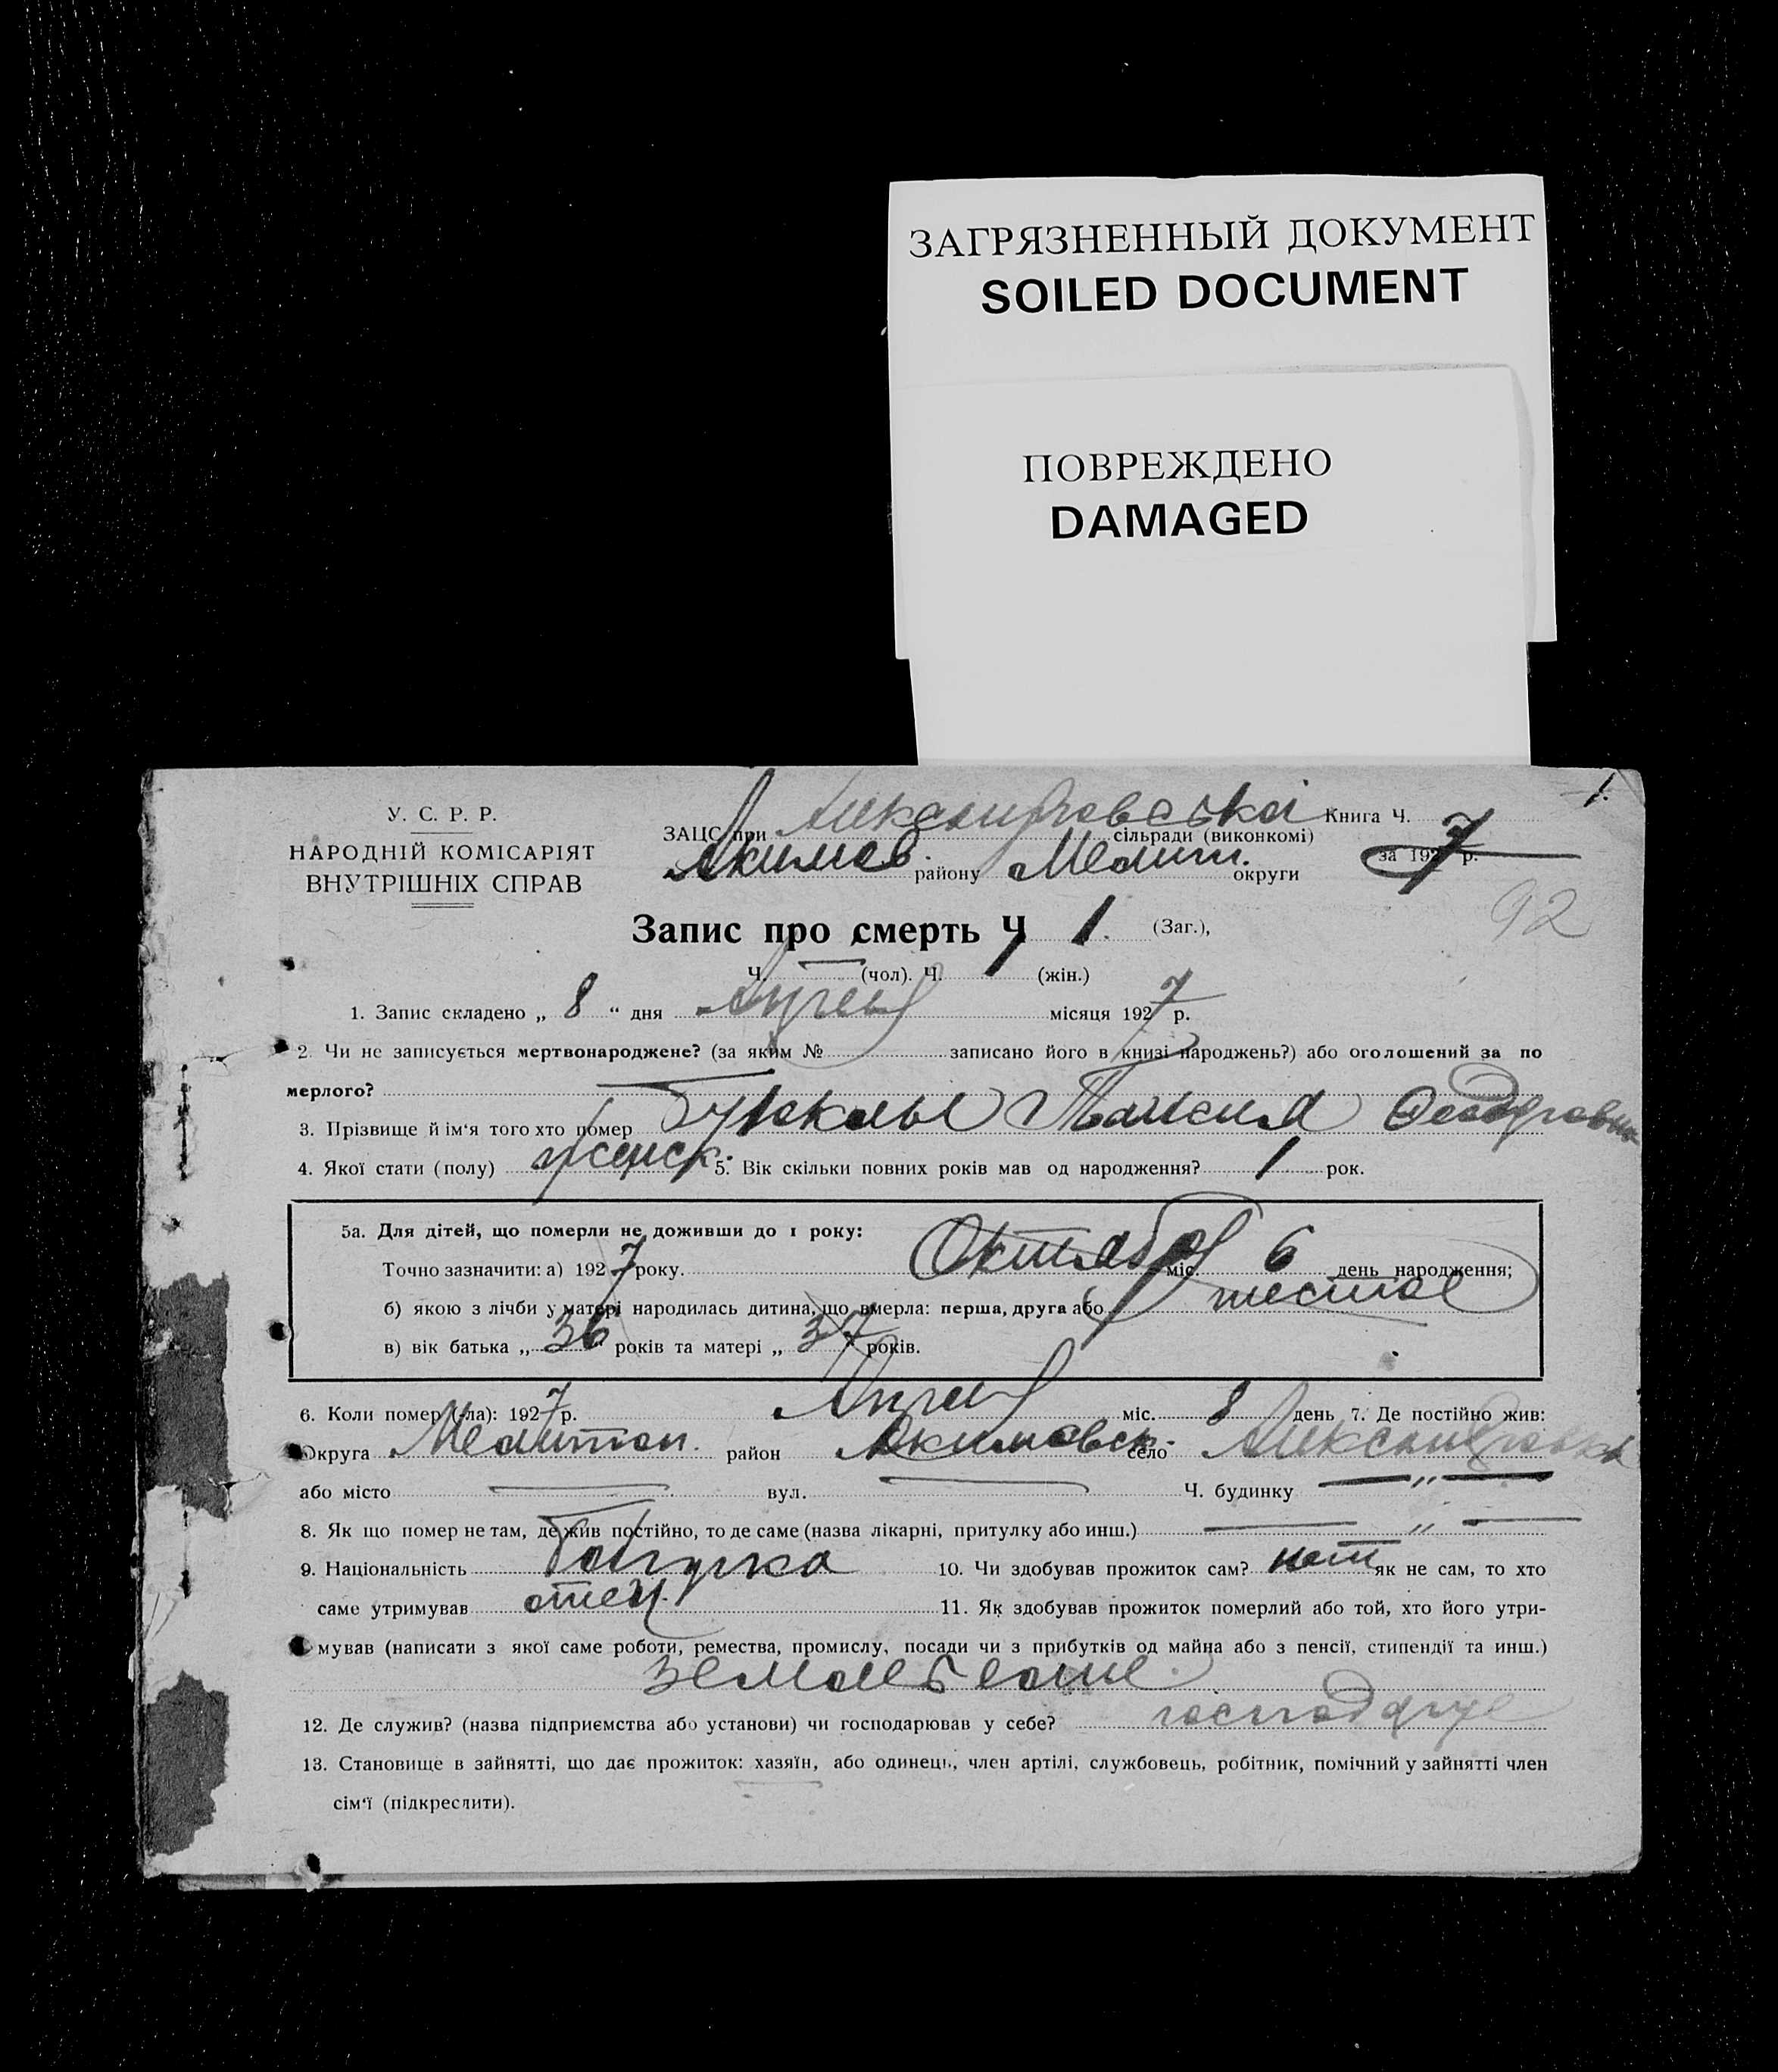 ЗАГРЯЗНЕННЫЙ ДОКУМЕНТ
SOILED DOCUMENT
ПОВРЕЖДЕНО
DAMAGED
1.
У. С. Р. Р.
НАРОДНІЙ КОМІСАРІЯТ
ВНУТРІШНІХ СПРАВ
ЗАЦС при Александровській сільради (виконкомі)
Акимов. району Мелит. округи
Книга Ч.
за 1927 р.
92
Запис про смерть Ч 1. (Заг.),
Ч. — (чол). Ч. 1 (жін.)
1. Запис складено „ 8 “ дня місяця 1927 р.
2. Чи не записується мертвонароджене? (за яким № записано його в книзі народжень?) або оголошений за по
мерлого? —
3. Прізвище й ім'я того хто помер Феодоровна
4. Якої стати (полу) женск. 5. Вік скільки повних років мав од народження? 1 рок.
5а. Для дітей, що померли не доживши до 1 року:
Точно зазначити: а) 1927 року. Октября міс 6 день народження;
б) якою з лічби у матері народилась дитина, що вмерла: перша, друга або шестая
в) вік батька „ 36 років та матері „ 37 “ років.
6. Коли помер (-ла): 1927 р. міс. 8 день 7. Де постійно жив:
Округа Мелитоп. район Акимовск. село Александровка
або місто — вул. — Ч. будинку — „ —
8. Як що помер не там, де жив постійно, то де саме (назва лікарні, притулку або инш.) — „ —
9. Національність 10. Чи здобував прожиток сам? нет як не сам, то хто
саме утримував отец. 11. Як здобував прожиток померлий або той, хто його утри-
мував (написати з якої саме роботи, ремества, промислу, посади чи з прибутків од майна або з пенсії, стипендії та инш.)
12. Де служив? (назва підприємства або установи) чи господарював у себе?
13. Становище в зайнятті, що дає прожиток: хазяїн, або одинець, член артілі, службовець, робітник, помічний у зайнятті член
сім'ї (підкреслити).